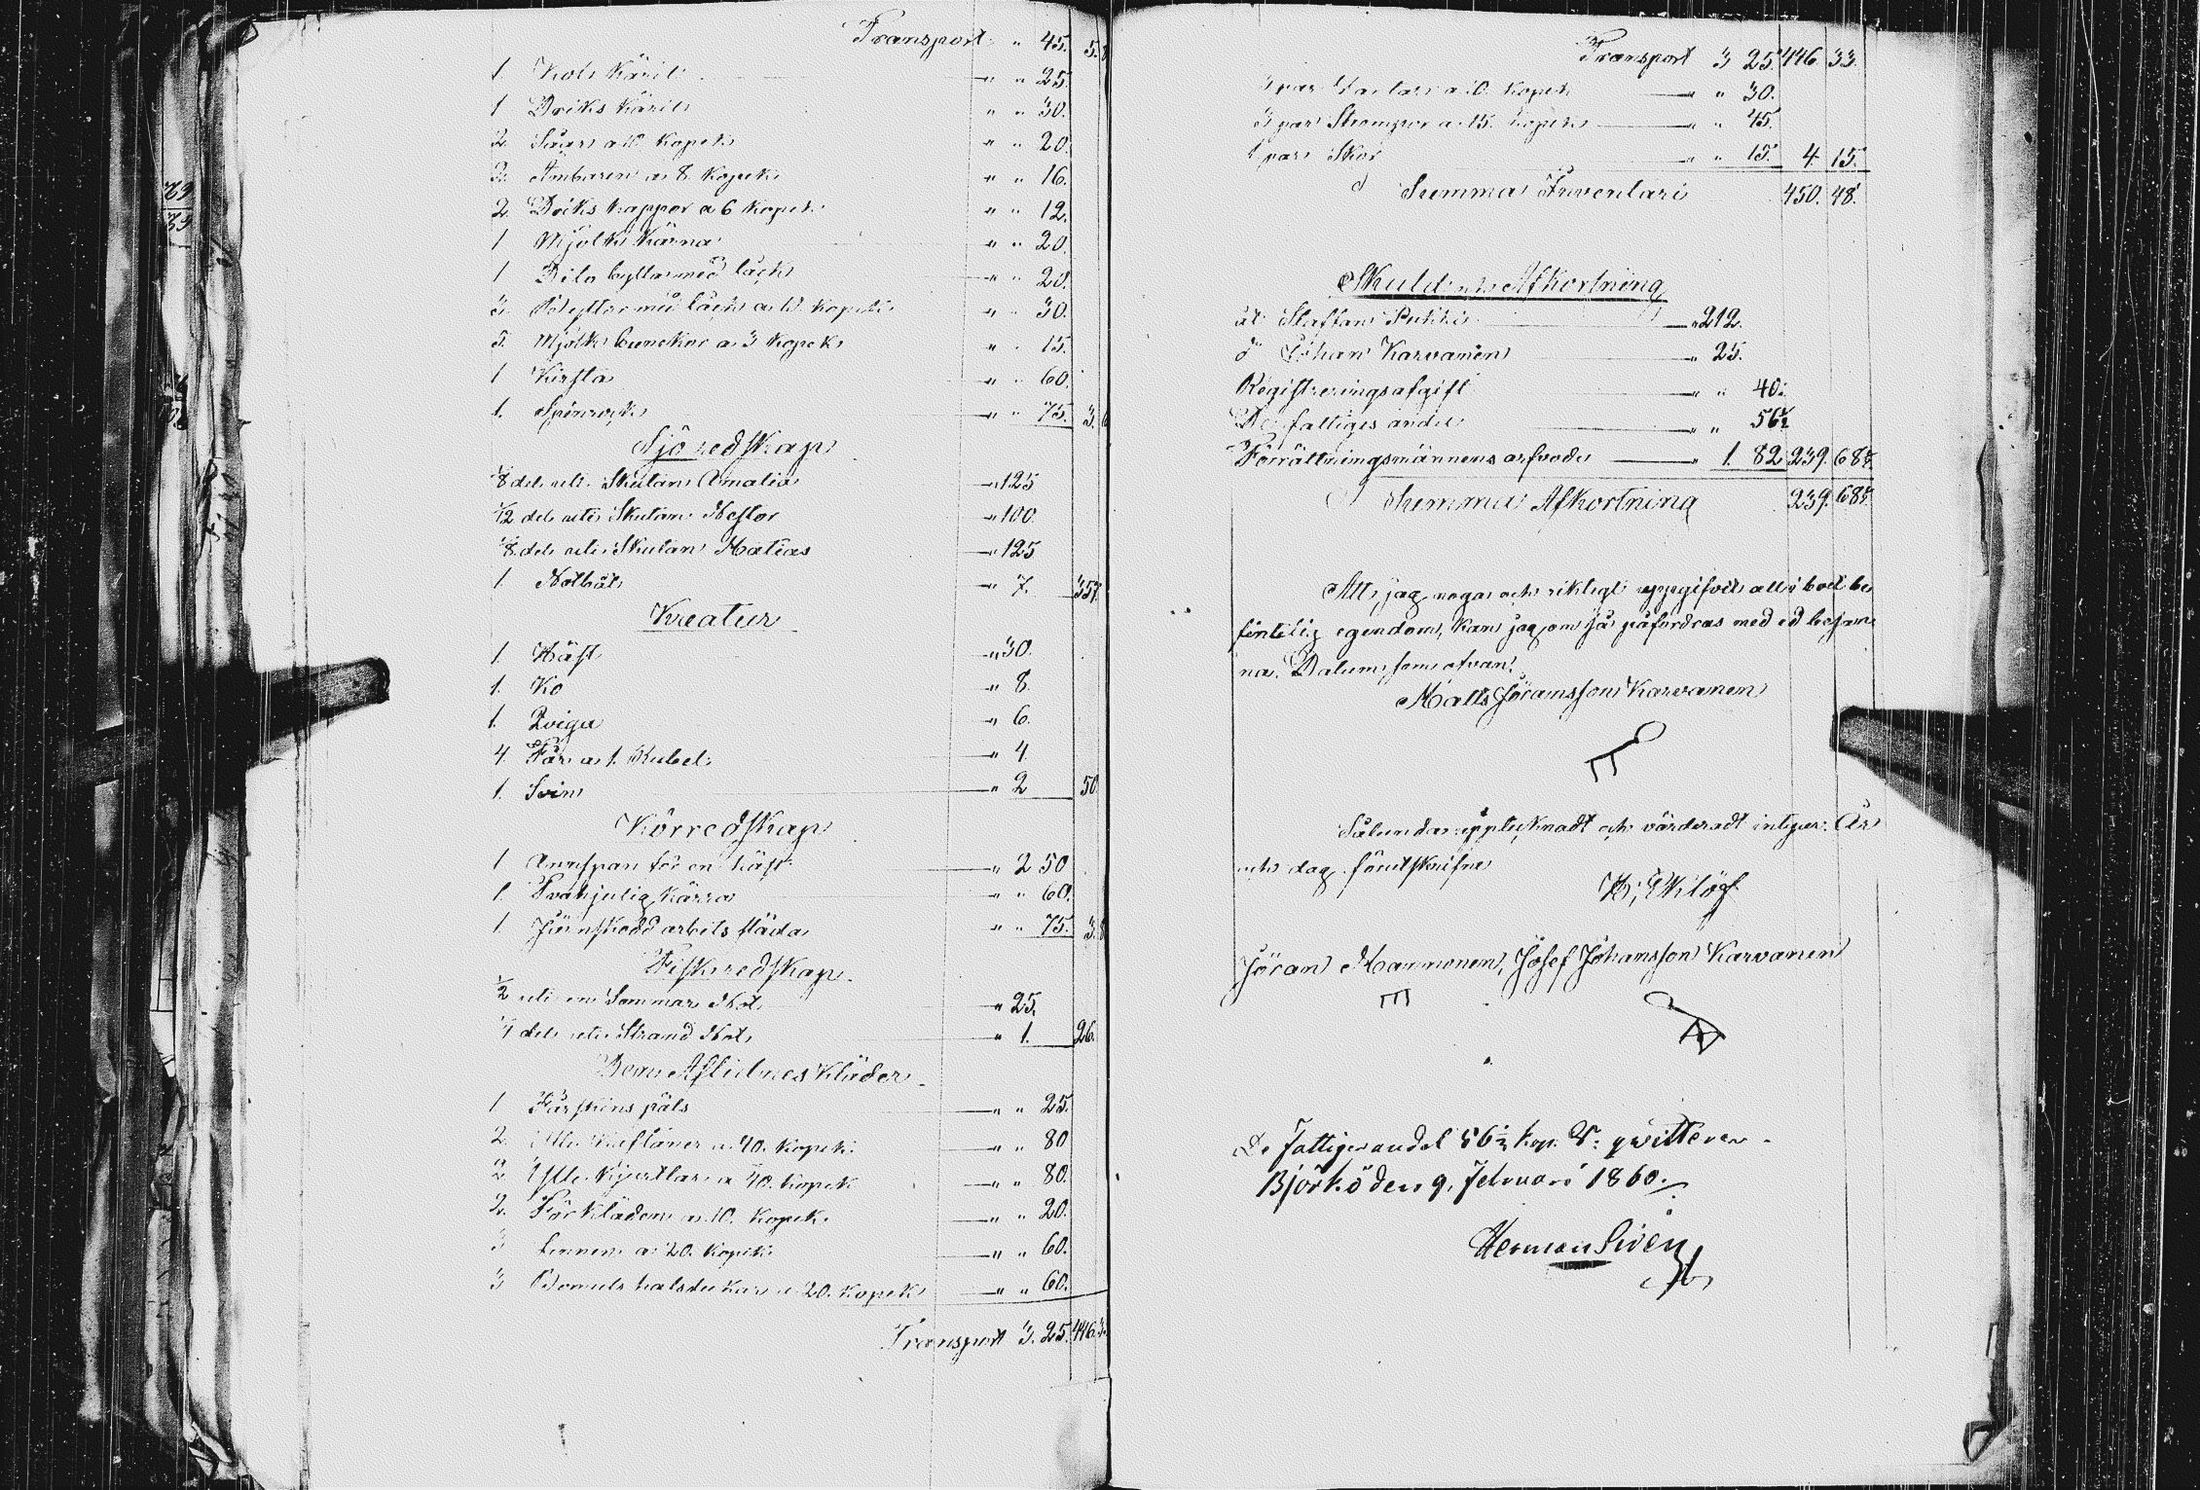 Transport " 45. 5.
1. Kok Käril " " 25.
1 Driks Käril " " 30.
2. Såar a 10 Kopek " " 20.
2. Ämbaren a 8. Kopek " " 16.
2 Driks kappor a 6 Kopek " " 12.
1 Mjölk Kärna " " 20.
1 Dito bytta med läck " " 20.
3. Byttor med läck a 10 kopek " " 30.
5. Mjölk bunckar a 3 Kopek " " 15.
1 Kista " " 60.
1. Spinrock " " 75. 3.
Sjö redskap
1/8 del uti Skutan Amalia " 125
1/12 del uti Skutan Nestor " 100.
1/8 del uti Skutan Matias " 125
1. Notbåt " 7. 357.
Kreatur
1. Häst " 30.
1. Ko " 8.
1. Qviga " 6.
4 Får a 1. Rubel " 4
1. Svin " 2 50
Körredskap
1 Annspan för en häst " 2 50
1. Tvåhjulig Kärra " " 60.
1. Järnskodd arbets släda " " 75. 3.
Fiskredskap
1/2 uti en Sommar Not " 25.
del uti Strand Not " 1. 26.
Dem Aflidnes Kläder
1 Fårskins päls " " 25.
2. Ylle Kaftaner a 40. Kopek " " 80
2 Ylle Kjortlar a 40. Kopek " " 80.
2. Förkläden a 10. Kopek " " 20.
3 Linnen a 20. Kopek " " 60.
3 Bomuls halsdukar a 20. Kopek " " 60.
Transport 3. 25. 446.
Transport 3 25. 446 33.
3 par a 10. Kopek " " 30.
3 par Strumpor a 15. Kopek " " 45.
1 par Skor " " 15. 4 15.
Summa Inventari 450. 48.
Skuld och Afkortning
åt Staffan Pukki " 212.
d:o Johan Karvanen " 25.
Registreringsafgift " " 40.
De fattiges andel " " 56½
Förrättningsmännens arfvode " 1. 82 239. 68½
Summa Afkortning 239. 68½
Att jag noga och riktigt uppgifvit all i boet be
fintelig egendom, kan jag, om så påfordras med ed besan
na. Datum som ofvan.
Matts Jöransson Karvanen
Sålunda upptecknadt och värderadt intyger. År
och dag förutskrifne
H. Eklöf
Jöran Mannonen, Josef Johansson Karvanen
De Fattigas andel 56½ kop. S: qvitteras.
Björkö den 9. Februari 1860.
Herman Siven